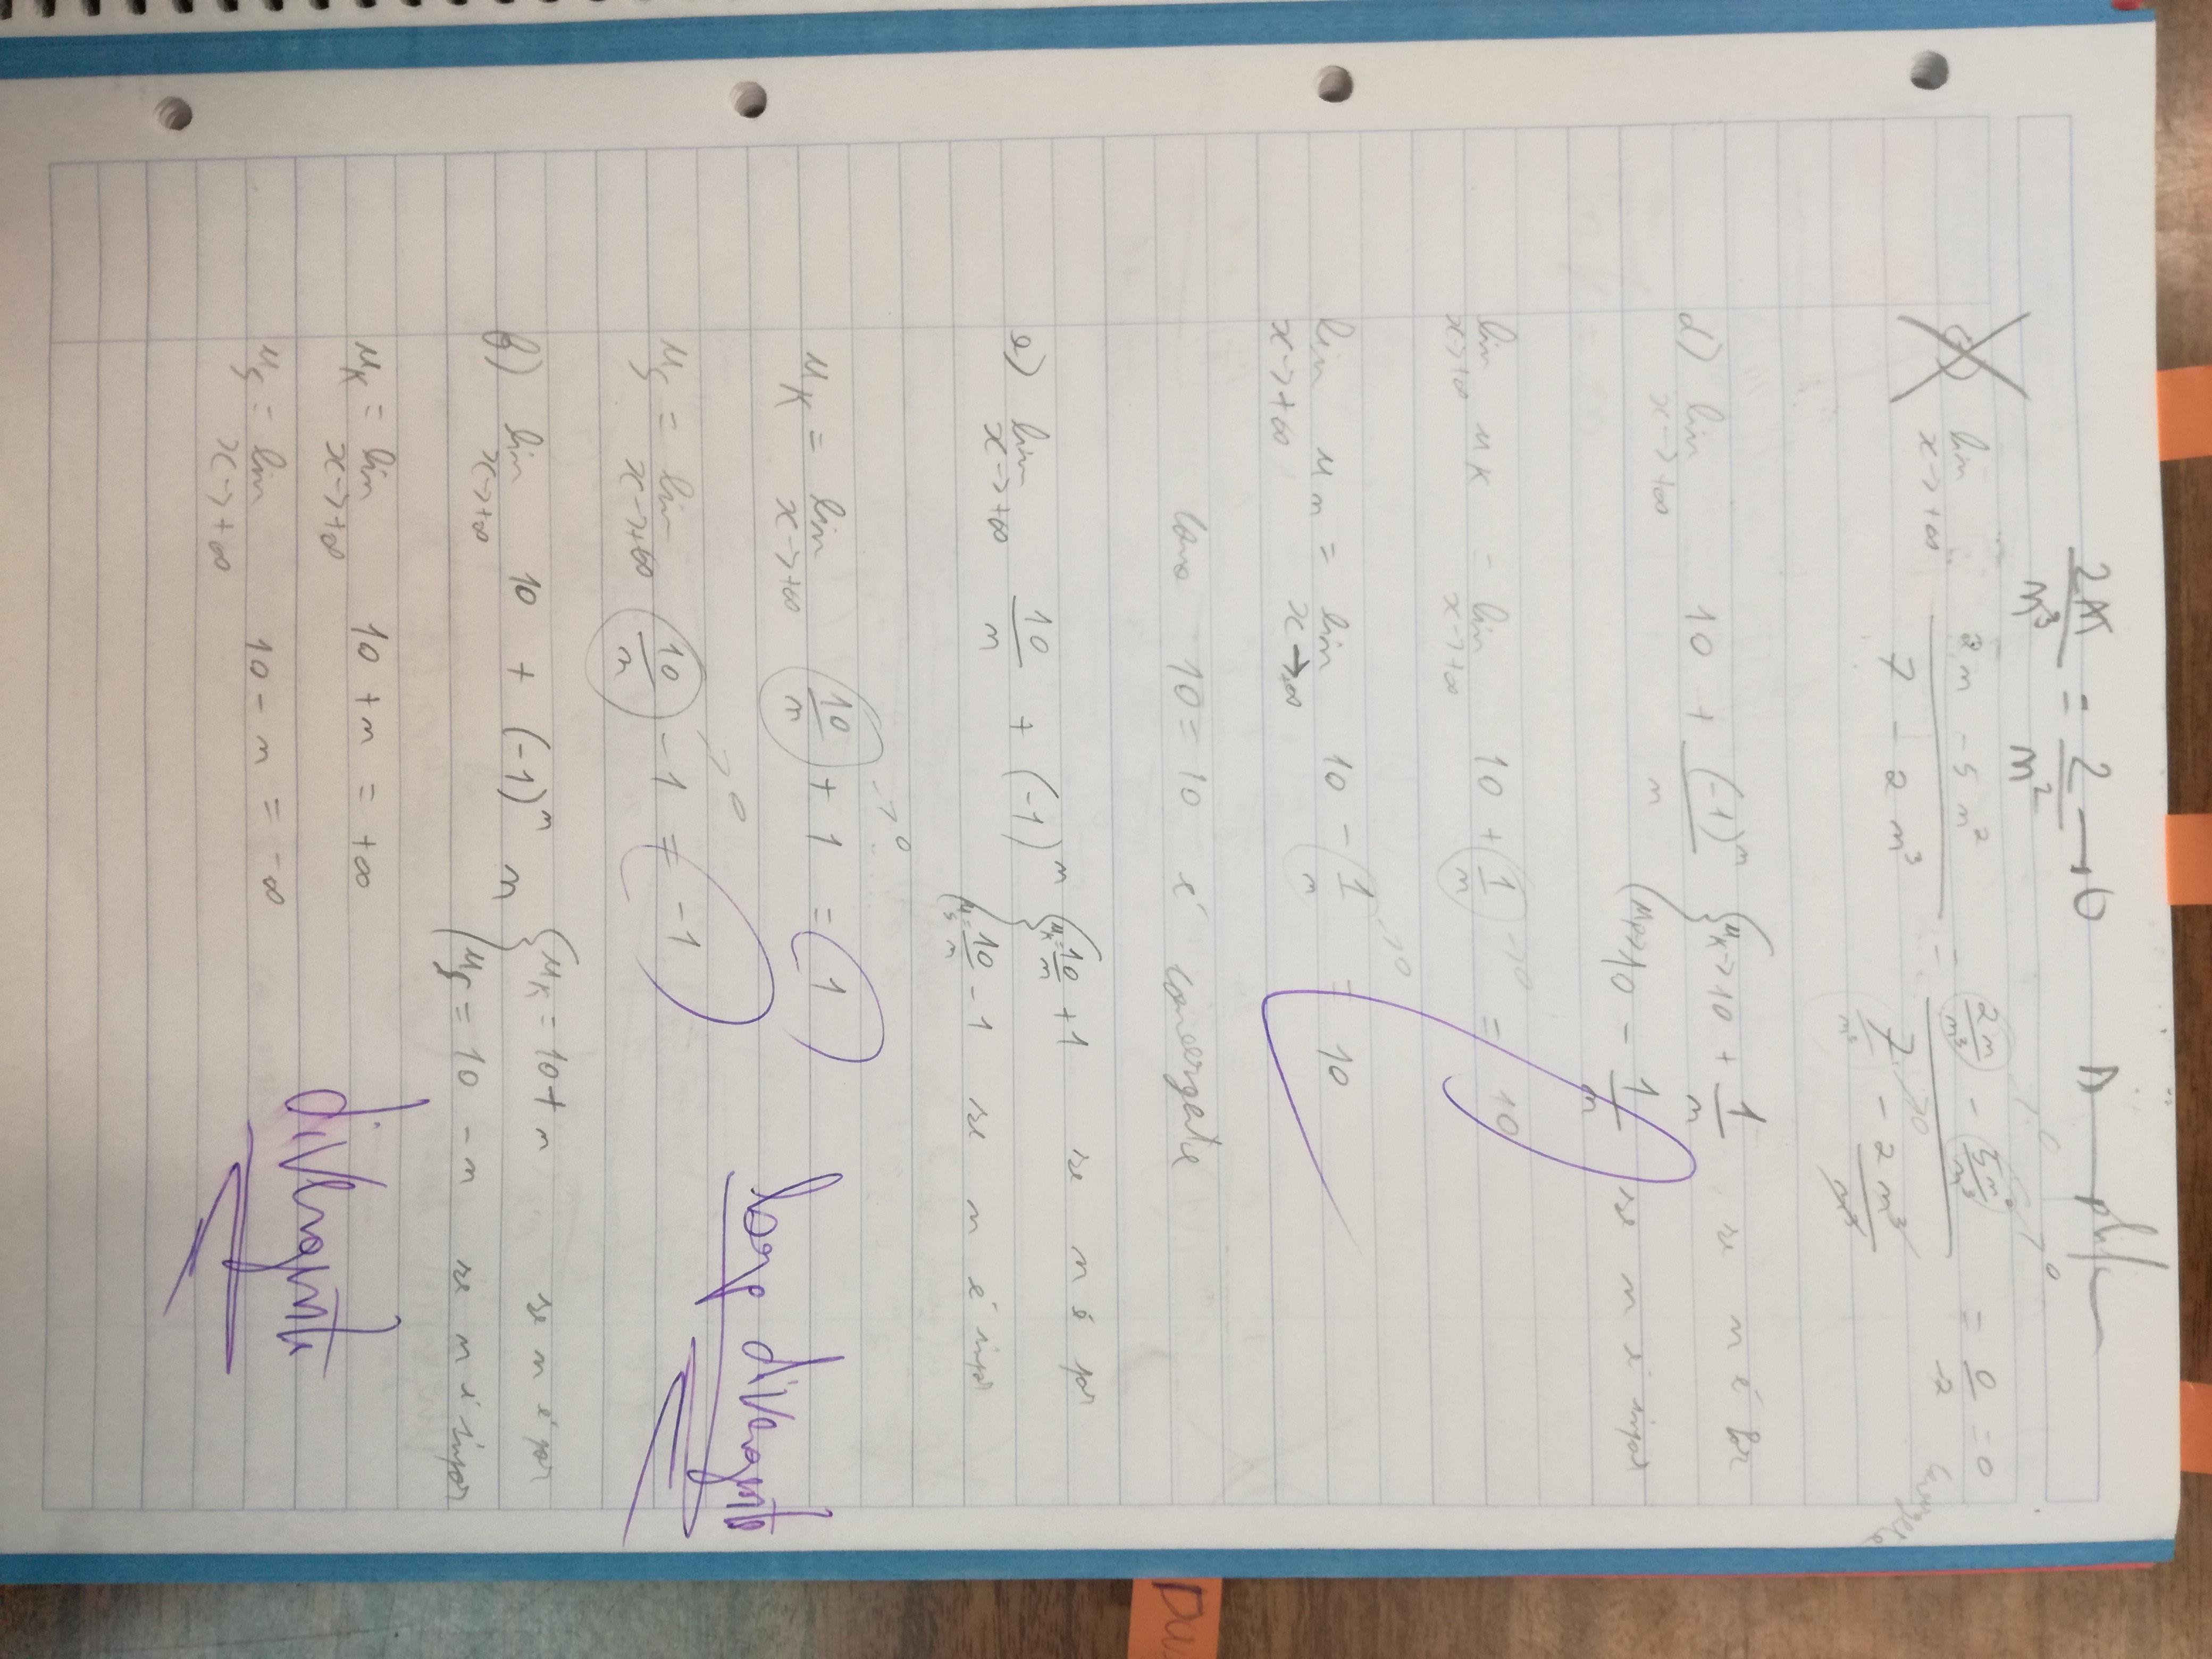 2n/n³ = 2/n² → 0
c) lim x→+∞ (2n - 5n²)/(7 - 2n³) = (2n/n³ - 5n²/n³)/(7/n³ - 2n³/n³) = 0/-2 = 0
d) lim x→+∞ 10 + (-1)ⁿ/n { u_k → 10 + 1/n se n é par
→ 10 - 1/n se n é impar
lim x→+∞ u_k = lim x→+∞ 10 + 1/n →0 = 10
lim x→+∞ u_n = lim x→∞ 10 - 1/n →0 = 10
como 10 = 10 é convergente
e) lim x→+∞ 10/n + (-1)ⁿ { u_k = 10/n + 1 se n é par
u_s = 10/n - 1 se n é impar
u_k = lim x→+∞ 10/n + 1 = 1 →0
u_s = lim x→+∞ 10/n - 1 = -1 →0
logo divergente
f) lim x→+∞ 10 + (-1)ⁿ n { u_k = 10 + n se n é par
u_s = 10 - n se n é impar
u_k = lim x→+∞ 10 + n = +∞
u_s = lim x→+∞ 10 - n = -∞
divergente